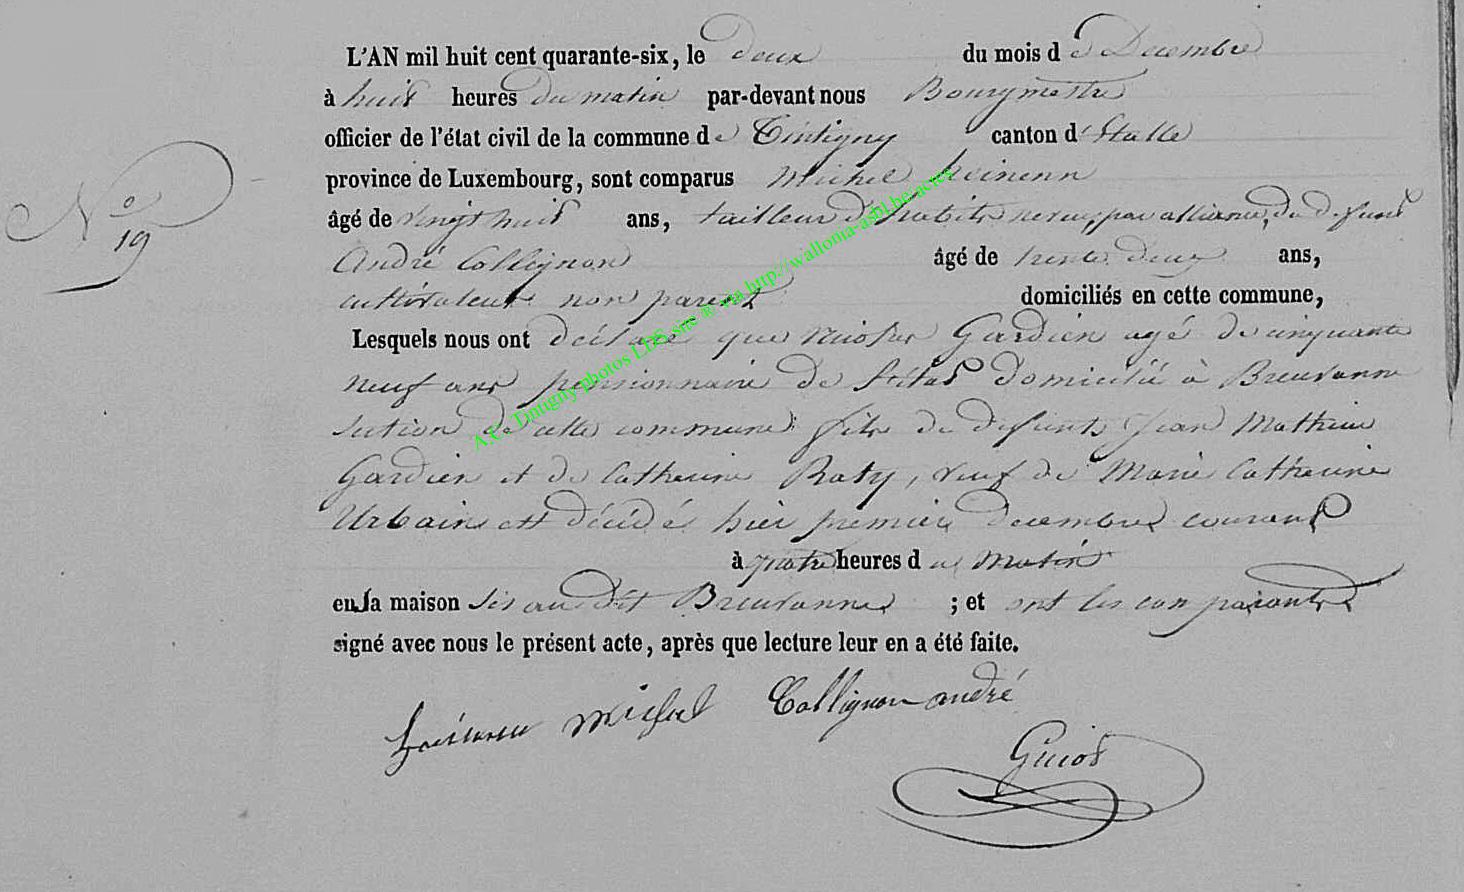 L'AN mil huit cent quarante-six, le deux du mois de Decembre
à huit heures du matin par-devant nous Bourgmestre
officier de l'état civil de la commune de Tintigny canton d'Etalle
province de Luxembourg, sont comparus Michel heinenn
N° 19
âgé de vingt huit ans, tailleur d'habits neveu par alliance, du defunt
André Collignon âgé de trente deux ans,
cultivateur non parent domiciliés en cette commune,
Lesquels nous ont déclaré que Nicolas Gardien agé de cinquante
neuf ans pensionnaire de l'état domicilié à Breuvanne
section de cette commune fils de defunts Jean Mathieu
Gardien et de Catherine Raty, veuf de Marie Catherine
Urbain est décédé hier premier decembre courant
à quatre heures du matin
en sa maison sis au dit Breuvanne ; et ont les comparants
signé avec nous le présent acte, après que lecture leur en a été faite.
heinenn michel Collignon andré
Guiot
A.C. Tintigny photos LDS site ® via http://wallonia-asbl.be/actes